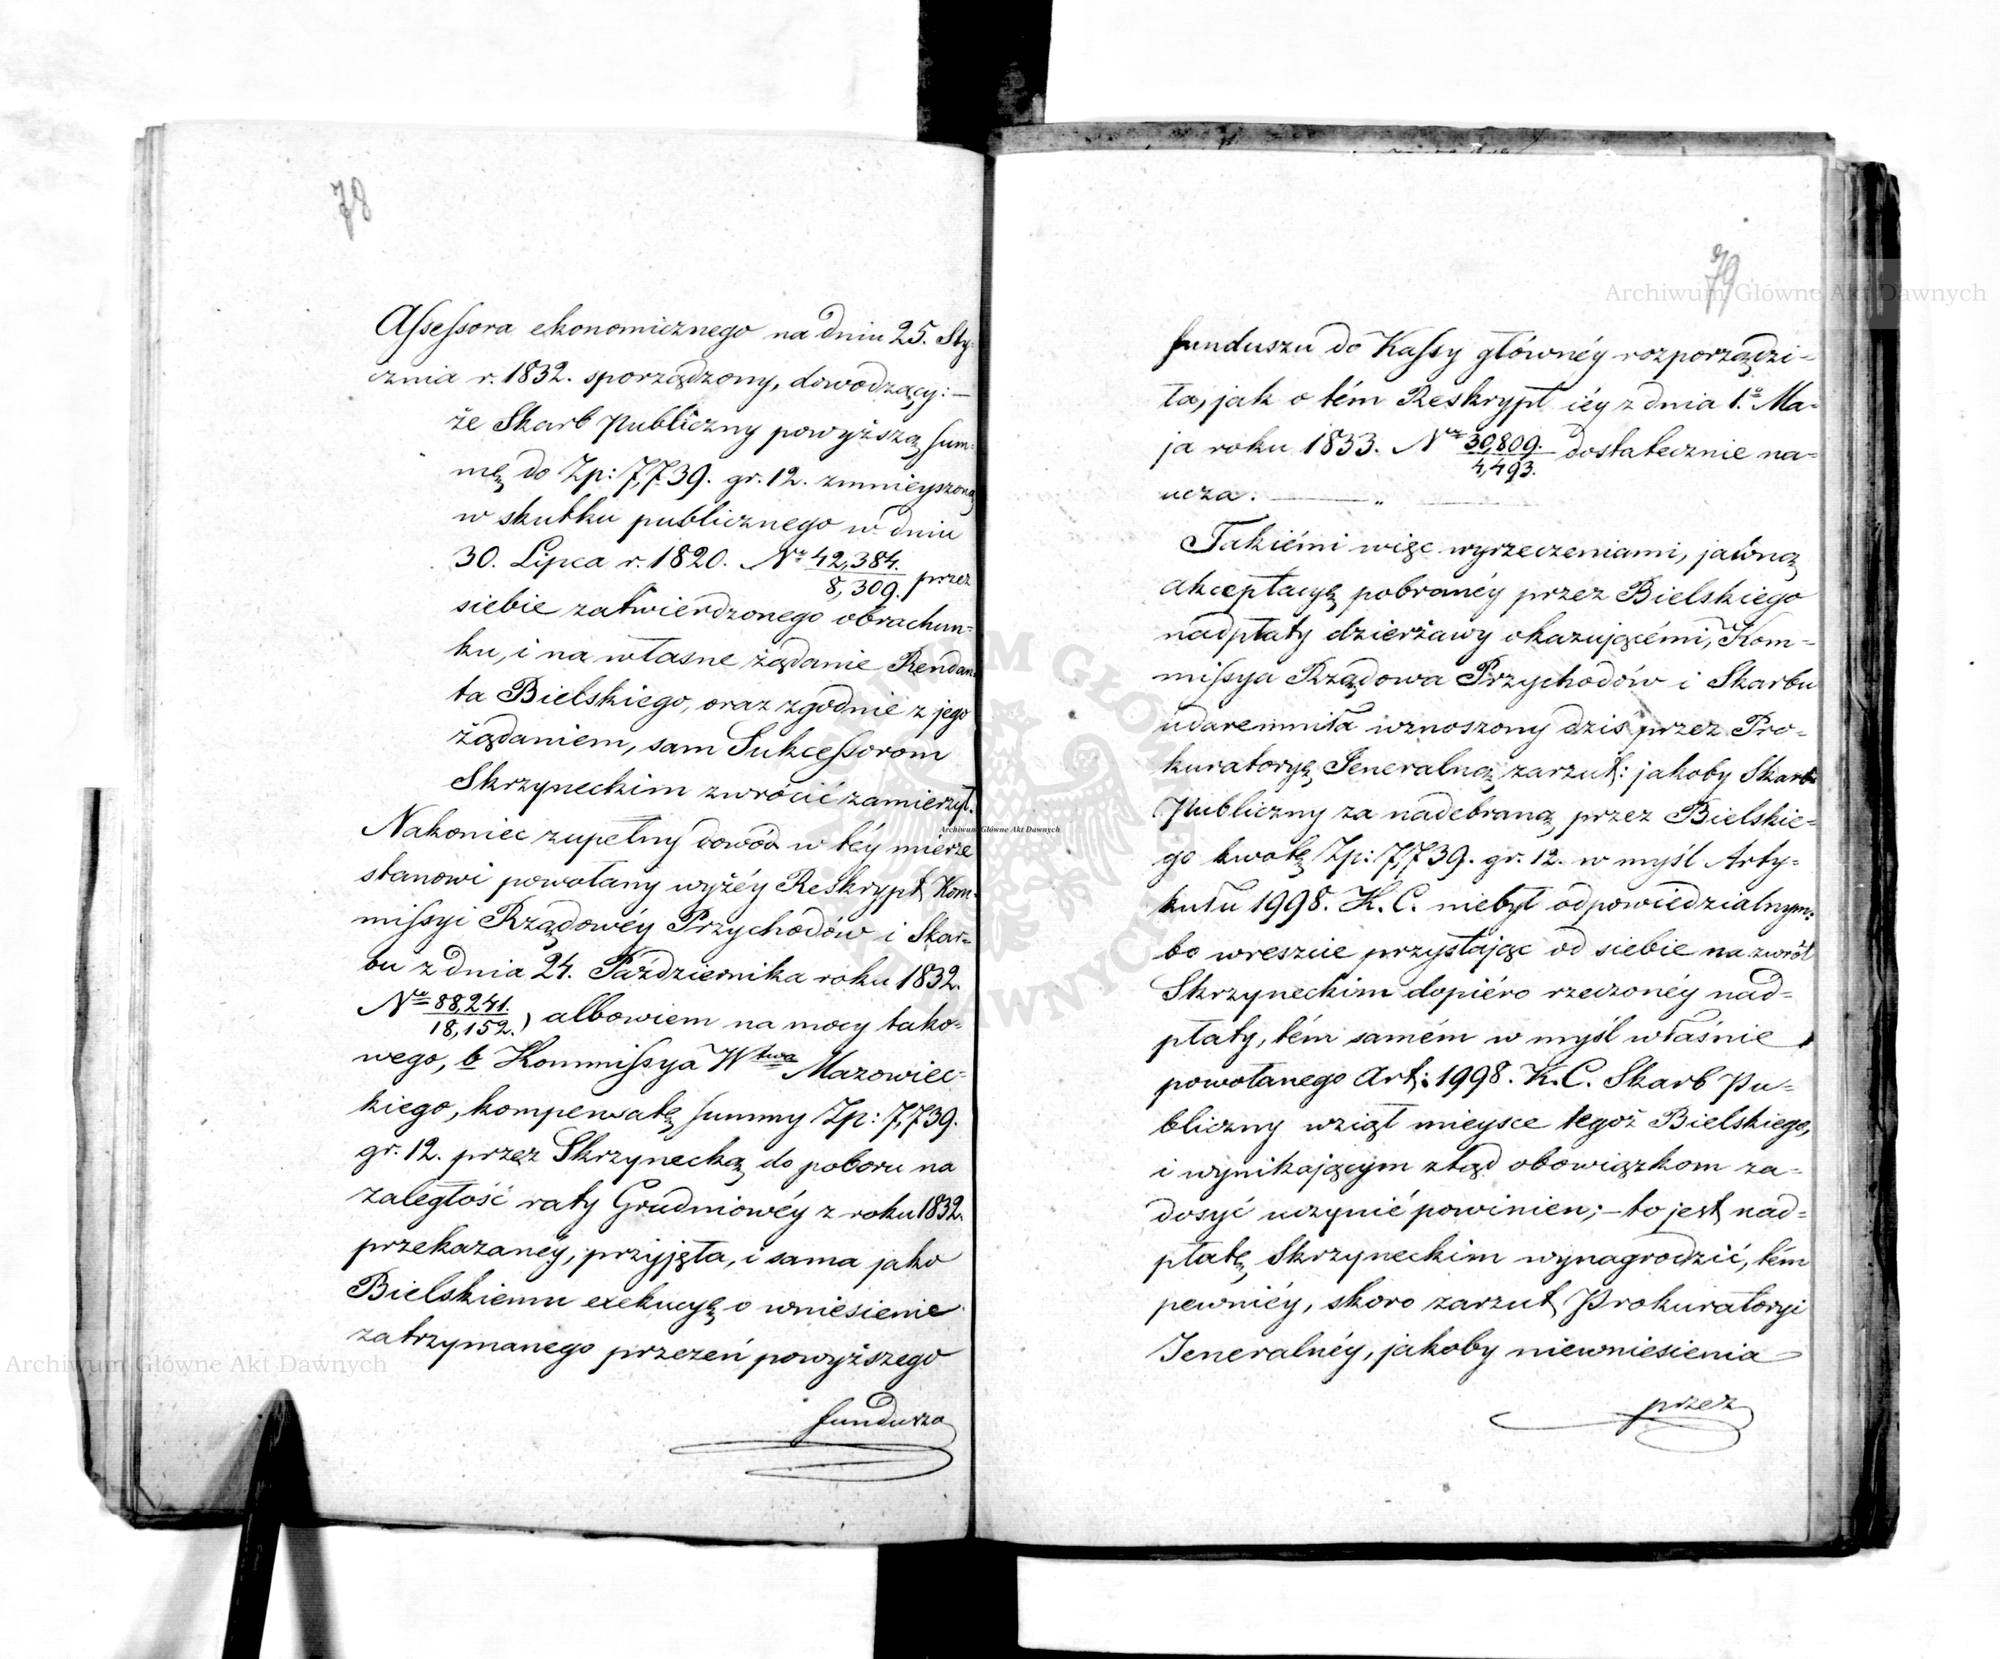 78
Assessora ekonomicznego na dniu 25. Sty-
cznia r. 1832. sporządzony, dowodzący: —
że Skarb Publiczny powyższą sum-
mę do Zp: 7,739. gr. 12. zmnieyszoną
w skutku publicznego w dniu
30. Lipca r. 1820. Nr 42,384./8,309. przez
siebie zatwierdzonego obrachun-
ku, i na własne żądanie Rendan-
ta Bielskiego, oraz zgodnie z jego
żądaniem, sam Sukcessorom
Skrzyneckim zwrócić zamierzył.
Nakoniec zupełny dowód w téy mierze
stanowi powołany wyżéy Reskrypt Kom-
missyi Rządowéy Przychodów i Skar-
bu z dnia 24. Października roku 1832.
Nr 88,241./18,152.) albowiem na mocy tako-
wego, b Kommissya Wtwa Mazowiec-
kiego, kompensatę summy Zp: 7,739.
gr. 12. przez Skrzynecką do poboru na
zaległość raty Grudniowéy z roku 1832.
przekazanéy, przyjęła, i sama jako
Bielskiemu exekucyę o wniesienie
zatrzymanego przezeń powyższego
funduszu
79
funduszu do Kassy główney rozporządzi-
ła, jak o tém Reskrypt iéy z dnia 1.o Ma-
ja roku 1833. Nr 30,809./4,493. dostatecznie na-
ucza. — „ —
Takiémi więc wyrzeczeniami, jawną
akceptacyę pobranéy przez Bielskiego
nadpłaty dzierżawy okazującémi, Kom-
missya Rządowa Przychodów i Skarbu
udaremniła wznoszony dziś przez Pro-
kuratoryę Jeneralną zarzut: jakoby Skarb
Publiczny za nadebraną przez Bielskie-
go kwotę Zp: 7,739. gr. 12. w myśl Arty-
kułu 1998. K. C. niebył odpowiedzialnym:
bo wreszcie przystając od siebie na zwrót
Skrzyneckim dopiéro rzeczonéy nad-
płaty, tém samém w myśl właśnie
powołanego Art: 1998. K. C. Skarb Pu-
bliczny wziął mieysce tegoż Bielskiego,
i wynikającym ztąd obowiązkom za-
dosyć uczynić powinien; — to jest nad-
płatę Skrzyneckim wynagrodzić, tém
pewniéy, skoro zarzut Prokuratoryi
Jeneralnéy, jakoby niewniesienia
przez
Archiwum Główne Akt Dawnych
Archiwum Główne Akt Dawnych
Archiwum Główne Akt Dawnych